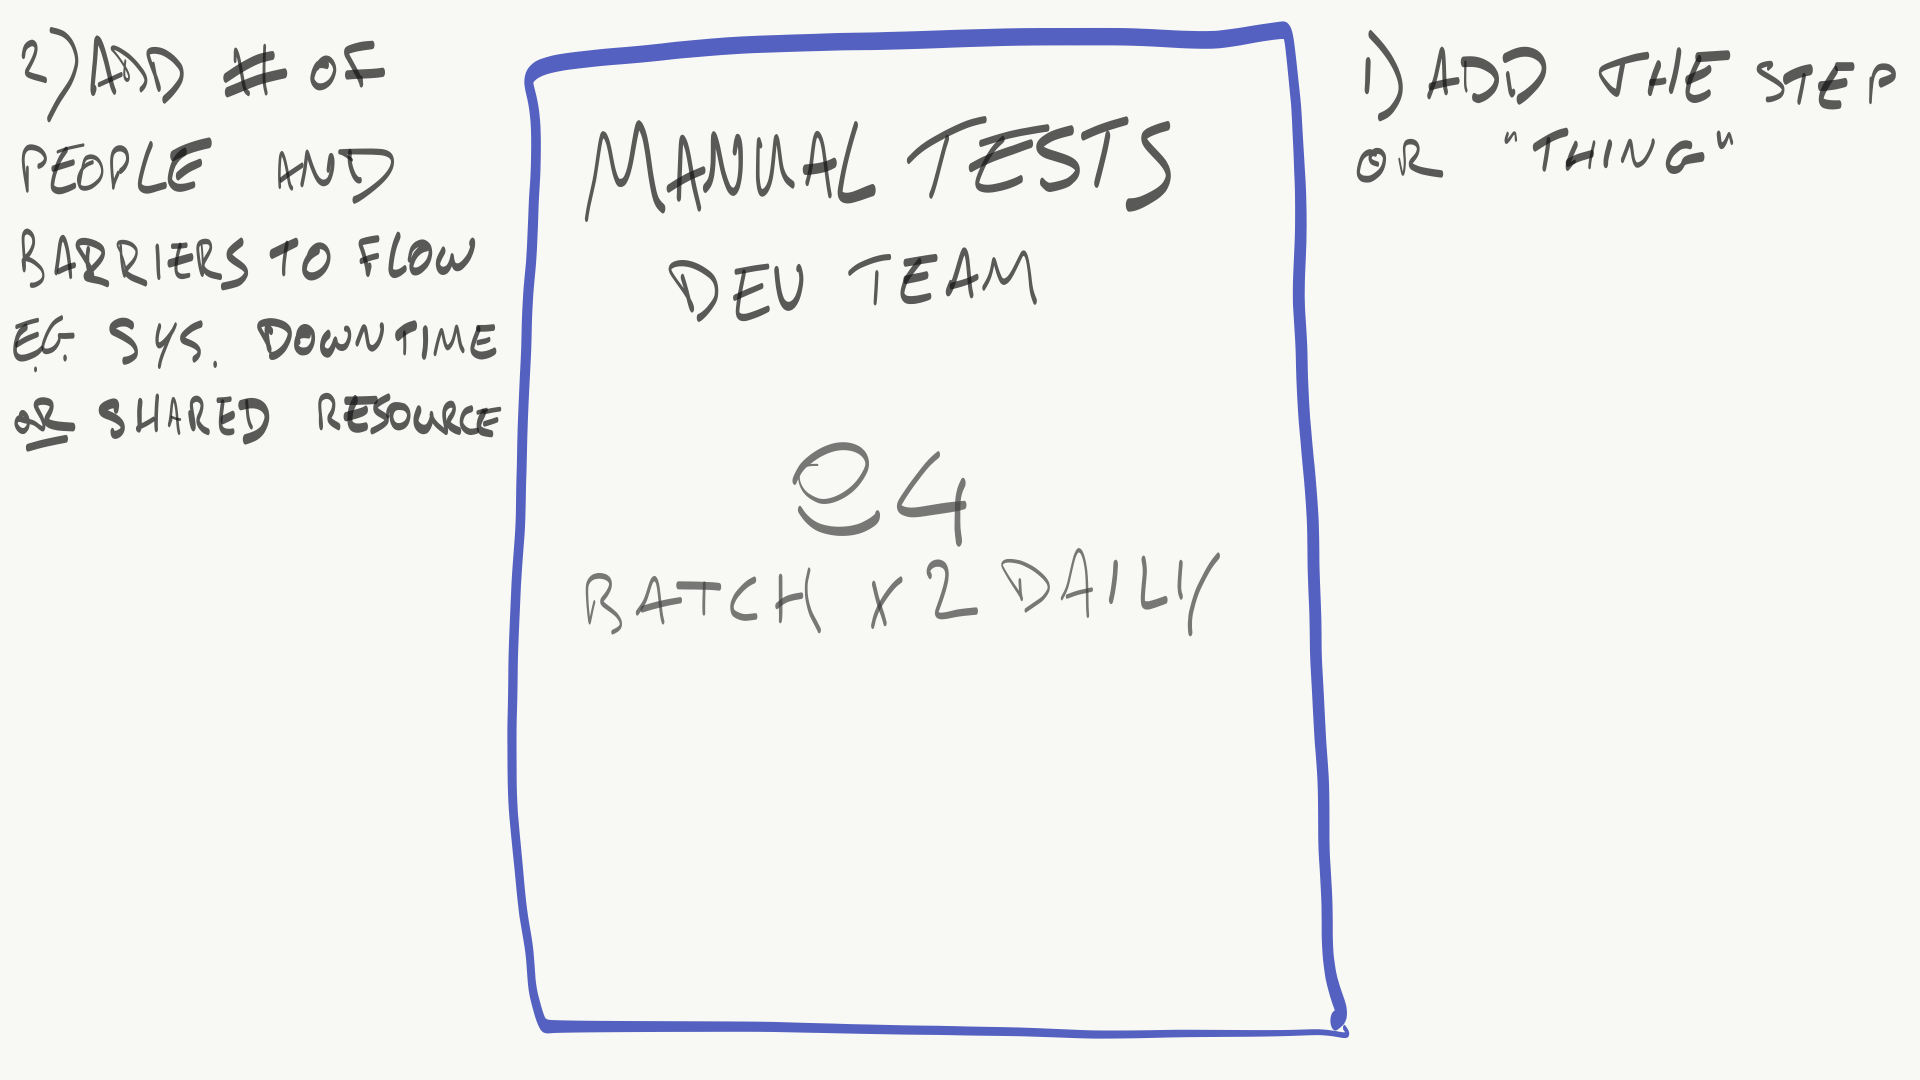 2) ADD # OF
PEOPLE AND
BARRIERS TO FLOW
E.G. SYS. DOWNTIME
OR SHARED RESOURCE
MANUAL TESTS
DEV TEAM
4
BATCH x2 DAILY
1) ADD THE STEP
OR "THING"